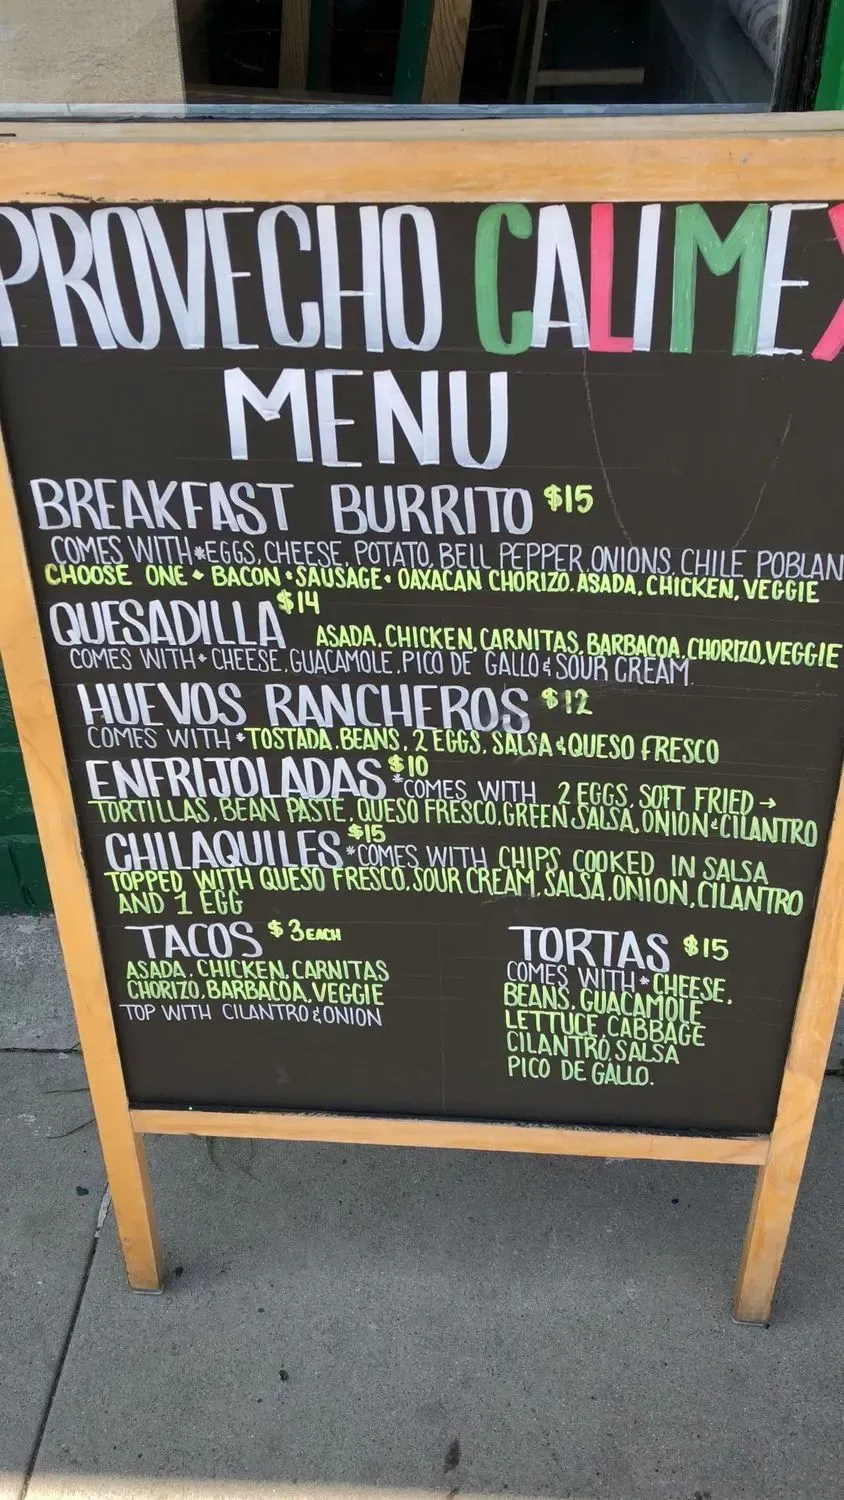 PROVECHO CALIMEX
MENU
BREAKFAST BURRITO $15
COMES WITH*EGGS, CHEESE, POTATO, BELL PEPPER, ONIONS, CHILE POBLAN
CHOOSE ONE • BACON • SAUSAGE • OAXACAN CHORIZO, ASADA, CHICKEN, VEGGIE
QUESADILLA $14 ASADA, CHICKEN, CARNITAS, BARBACOA, CHORIZO, VEGGIE
COMES WITH* CHEESE, GUACAMOLE, PICO DE GALLO & SOUR CREAM
HUEVOS RANCHEROS $12
COMES WITH *TOSTADA, BEANS, 2 EGGS, SALSA & QUESO FRESCO
ENFRIJOLADAS $10 *COMES WITH 2 EGGS, SOFT FRIED →
TORTILLAS, BEAN PASTE, QUESO FRESCO, GREEN SALSA, ONION & CILANTRO
CHILAQUILES $15 *COMES WITH CHIPS COOKED IN SALSA
TOPPED WITH QUESO FRESCO, SOUR CREAM, SALSA, ONION, CILANTRO
AND 1 EGG
TACOS $3 EACH
ASADA, CHICKEN, CARNITAS
CHORIZO, BARBACOA, VEGGIE
TOP WITH CILANTRO & ONION
TORTAS $15
COMES WITH* CHEESE,
BEANS, GUACAMOLE
LETTUCE, CABBAGE
CILANTRO, SALSA
PICO DE GALLO.